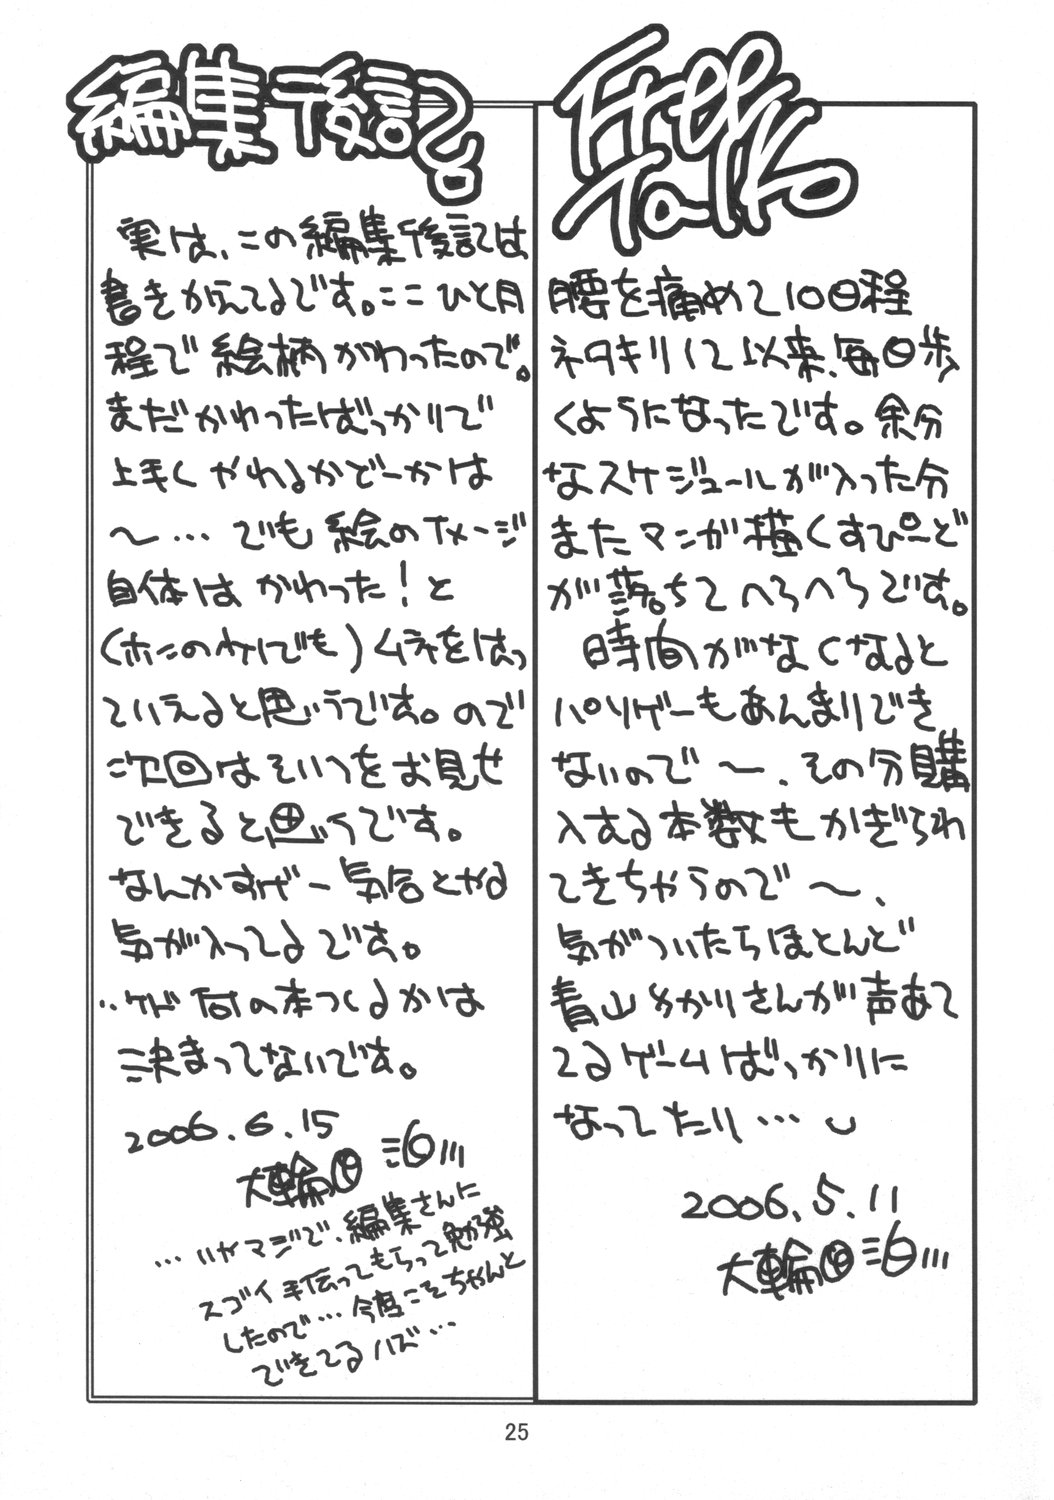 編集後記
実は、この編集後記は
書きかえてるです。ここひと月
程で絵柄がわったので。
まだかわったばっかりで
上手くやれるかどーかは
〜…でも絵のイメージ
自体はかわった!と
(ホンのケイでも)ムネをはっ
ていえると思うです。ので
次回はそいつをお見せ
できると思うです。
なんかすげー気合とかる
気が入ってるです。
…ケド何の本つくるかは
決まってないです。
2006.6.15
大輪 泊
…いやマジで、編集さんに
スゴイ手伝ってもらって勉強
したので…今度こそちゃんと
できてるハズ…
Free
Talk
腰を痛めて10日程
ネタキリして以来、毎日歩
くようになったです。余分
なスケジュールが入った分
またマンガ描くすぴーど
が落ちてへろへろです。
時間がなくなると
パソゲーもあんまりでき
ないので〜、その分購
入する本数もかぎられ
てきちゃうので〜、
気がついたらほとんど
青山ゆかりさんが声あて
てるゲームばっかりに
なってたり…
2006.5.11
大輪 泊
25